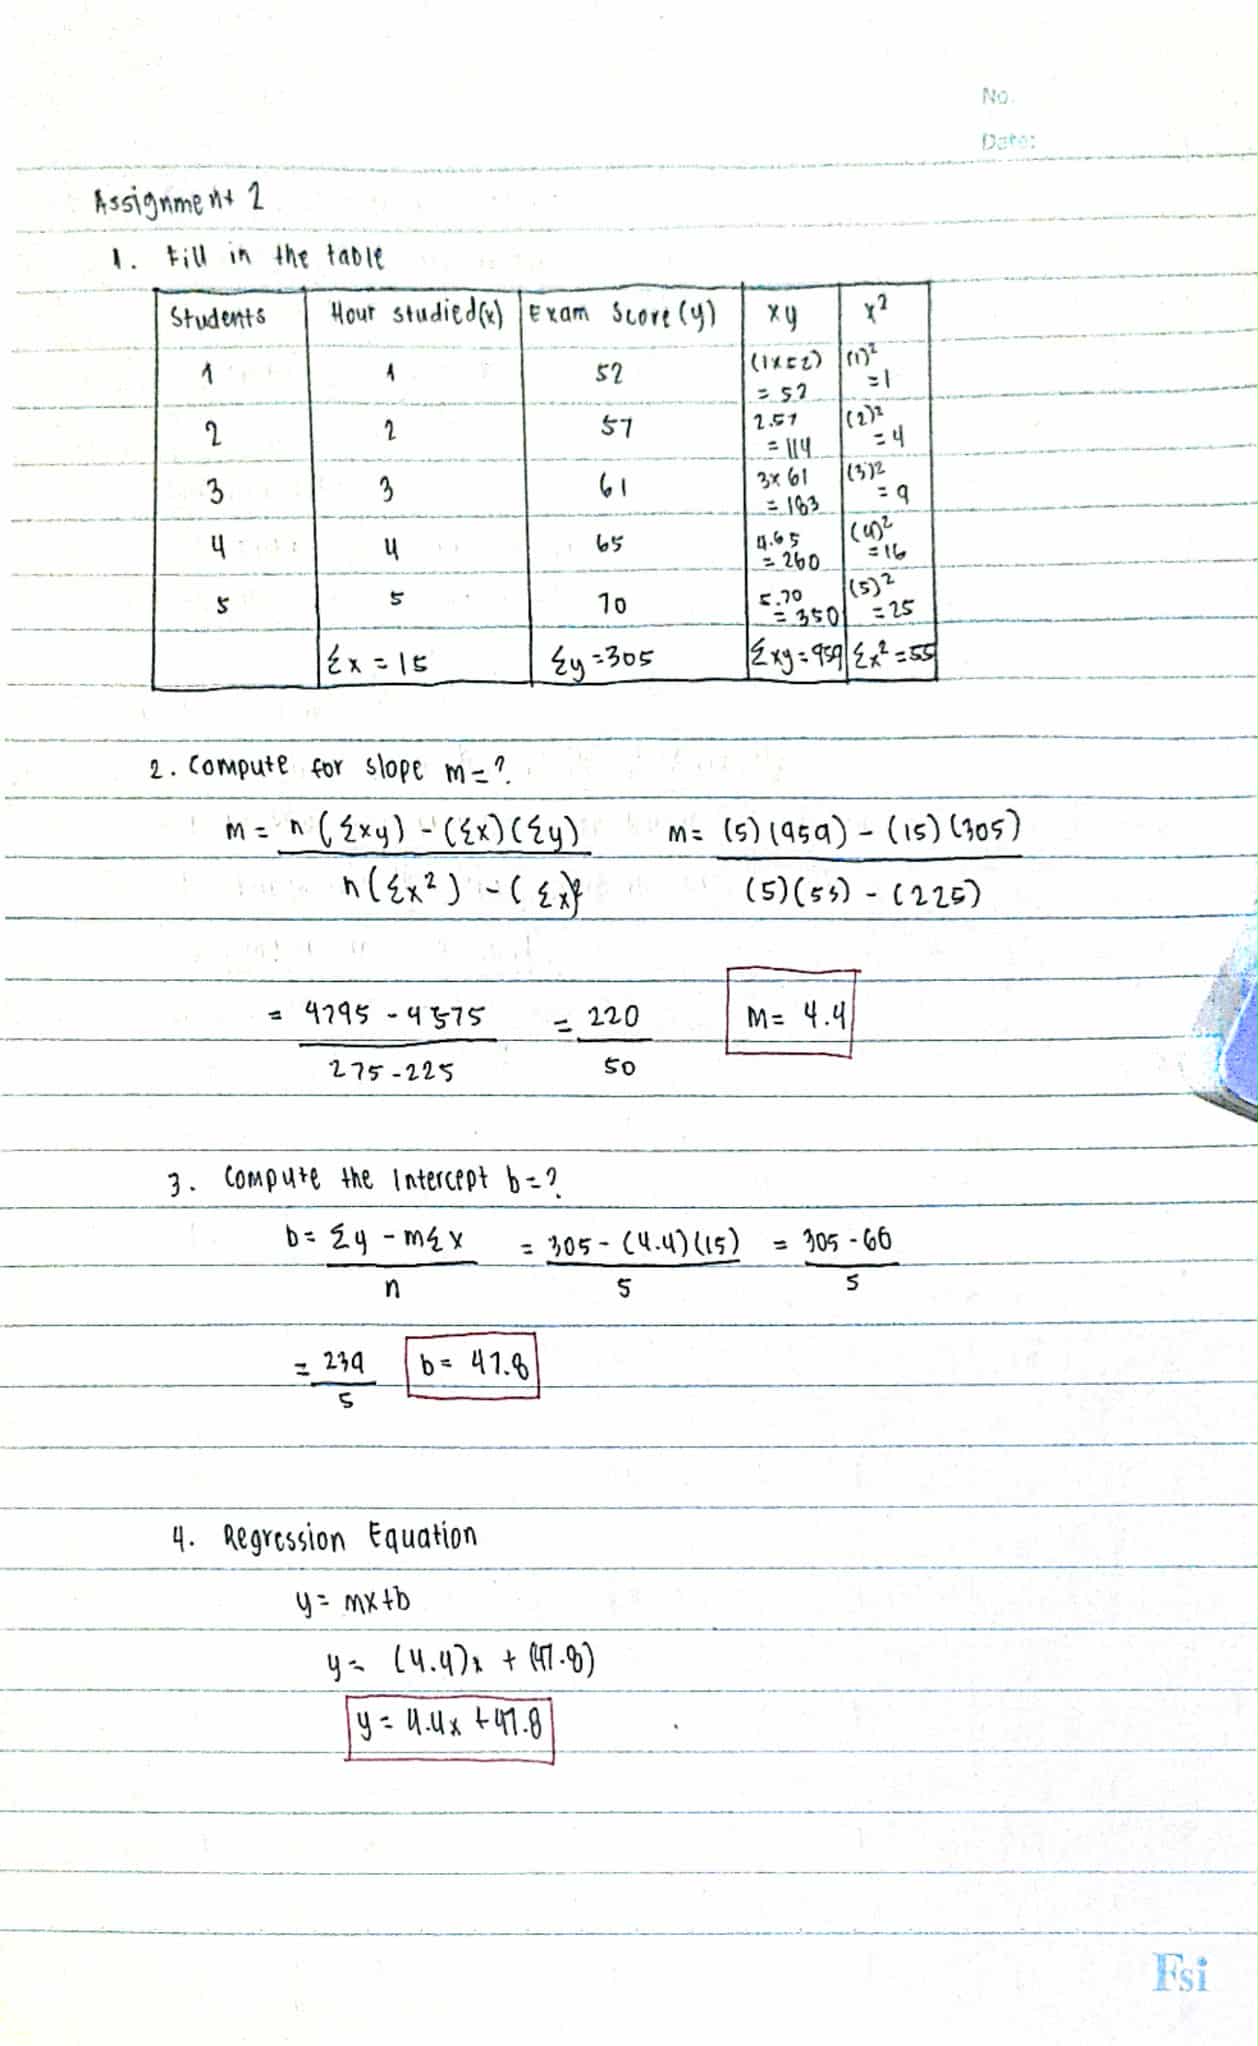 No.
Date:
Assignment 2
1. Fill in the table
Students Hour studied(x) Exam Score (y) xy x²
1 1 52 (1x52) = 52 (1)² =1
2 2 57 2.57 = 114 (2)² = 4
3 3 61 3x61 = 183 (3)² = 9
4 4 65 4.65 = 260 (4)² = 16
5 5 70 5.70 = 350 (5)² = 25
Σx = 15 Σy = 305 Σxy = 959 Σx² = 55
2. Compute for slope m = ?
m = n(Σxy) - (Σx)(Σy) m = (5)(959) - (15)(305)
n(Σx²) - (Σx)² (5)(55) - (225)
= 4795 - 4575 = 220 m = 4.4
275 - 225 50
3. Compute the Intercept b = ?
b = Σy - mΣx = 305 - (4.4)(15) = 305 - 66
n 5 5
= 239 b = 47.8
5
4. Regression Equation
y = mx+b
y = (4.4)x + (47.8)
y = 4.4x + 47.8
Fsi